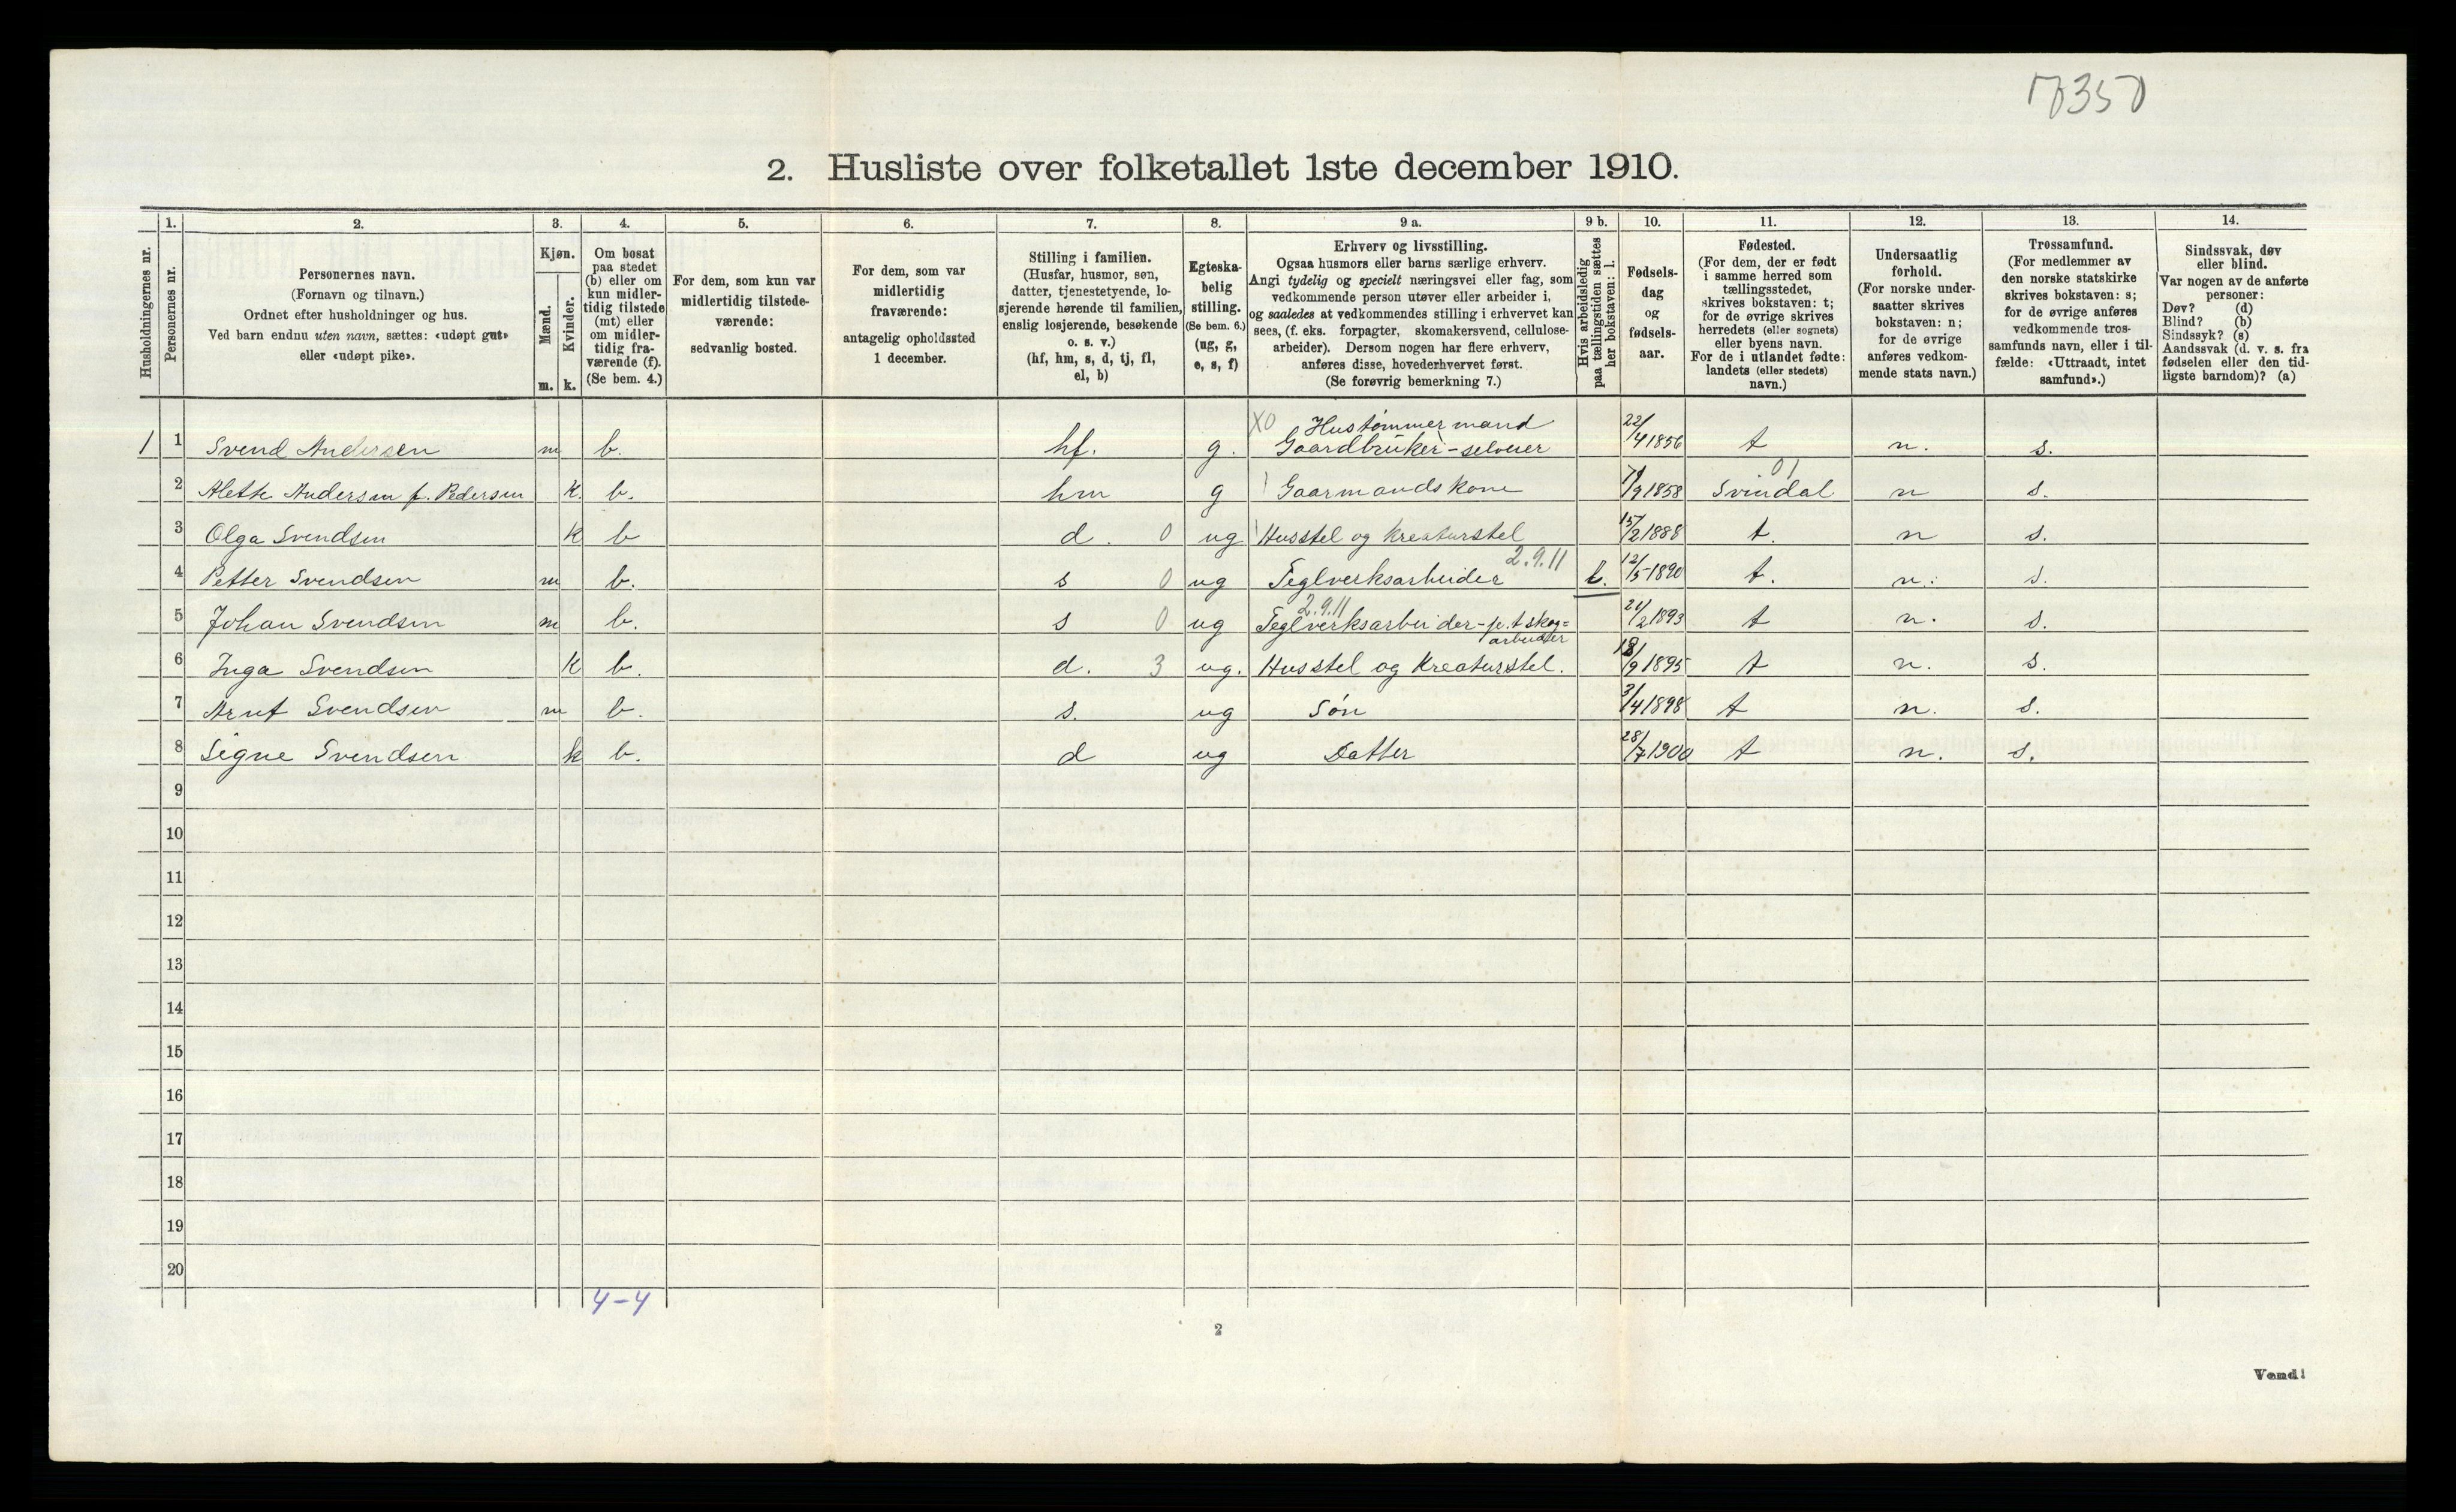 2. Husliste over folketallet 1ste december 1910.
Husholdningernes nr.
1.
Personernes nr.
2.
Personernes navn.
(Fornavn og tilnavn.)
Ordnet efter husholdninger og hus.
Ved barn endnu uten navn, sættes: «udøpt gut»
eller «udøpt pike».
3.
Kjøn.
Mænd.
m.
Kvinder.
k.
4.
Om bosat
paa stedet
(b) eller om
kun midler-
tidig tilstede
(mt) eller
om midler-
tidig fra-
værende (f).
(Se bem. 4.)
5.
For dem, som kun var
midlertidig tilstede-
værende:
sedvanlig bosted.
6.
For dem, som var
midlertidig
fraværende:
antagelig opholdssted
1 december.
7.
Stilling i familien.
(Husfar, husmor, søn,
datter, tjenestetyende, lo-
sjerende hørende til familien,
enslig losjerende, besøkende
o. s. v.)
(hf, hm, s, d, tj, fl,
el, b)
8.
Egteska-
belig
stilling.
(Se bem. 6.)
(ug, g,
e, s, f)
9 a.
Erhverv og livsstilling.
Ogsaa husmors eller barns særlige erhverv.
Angi tydelig og specielt næringsvei eller fag, som
vedkommende person utøver eller arbeider i,
og saaledes at vedkommendes stilling i erhvervet kan
sees, (f. eks. forpagter, skomakersvend, cellulose-
arbeider). Dersom nogen har flere erhverv,
anføres disse, hovederhvervet først.
(Se forøvrig bemerkning 7.)
9 b.
Hvis arbeidsledig
paa tællingstiden sættes
her bokstaven: l.
10.
Fødsels-
dag
og
fødsels-
aar.
11.
Fødested.
(For dem, der er født
i samme herred som
tællingsstedet,
skrives bokstaven: t;
for de øvrige skrives
herredets (eller sognets)
eller byens navn.
For de i utlandet fødte:
landets (eller stedets)
navn.)
12.
Undersaatlig
forhold.
(For norske under-
saatter skrives
bokstaven: n;
for de øvrige
anføres vedkom-
mende stats navn.)
13.
Trossamfund.
(For medlemmer av
den norske statskirke
skrives bokstaven: s;
for de øvrige anføres
vedkommende tros-
samfunds navn, eller i til-
fælde: «Uttraadt, intet
samfund».)
14.
Sindssvak, døv
eller blind.
Var nogen av de anførte
personer:
Døv? (d)
Blind? (b)
Sindssyk? (s)
Aandssvak (d. v. s. fra
fødselen eller den tid-
ligste barndom)? (a)
X0 Hustømmermand
1 1 Svend Andersen m b. hf. g. Gaardbruker-selveier 22/4 1856 t n. s.
2 Alette Andersen f. Pedersen k. b. hm g Gaarmandskone 7/9 1858 Svindal 01 n s.
3 Olga Svendsen k b d. 0 ug Husstel og kreaturstel 15/2 1888 t. n s.
4 Petter Svendsen m b. s 0 ug Teglverksarbeider 2.9.11 l. 12/5 1890 t. n. s.
2.9.11
5 Johan Svendsen m b. s 0 ug Teglverksarbeider-p.t skog=
arbeider 21/2 1893 t n. s.
6 Inga Svendsen k b. d. 3 ug. Husstel og Kreaturstel. 18/9 1895 t n. s.
7 Arnt Svendsen m b. s. ug Søn 3/4 1898 t n. s.
8 Signe Svendsen k b. d ug Datter 28/7 1900 t n. s.
9
10
11
12
13
14
15
16
17
18
19
20
4-4
2
Vend!